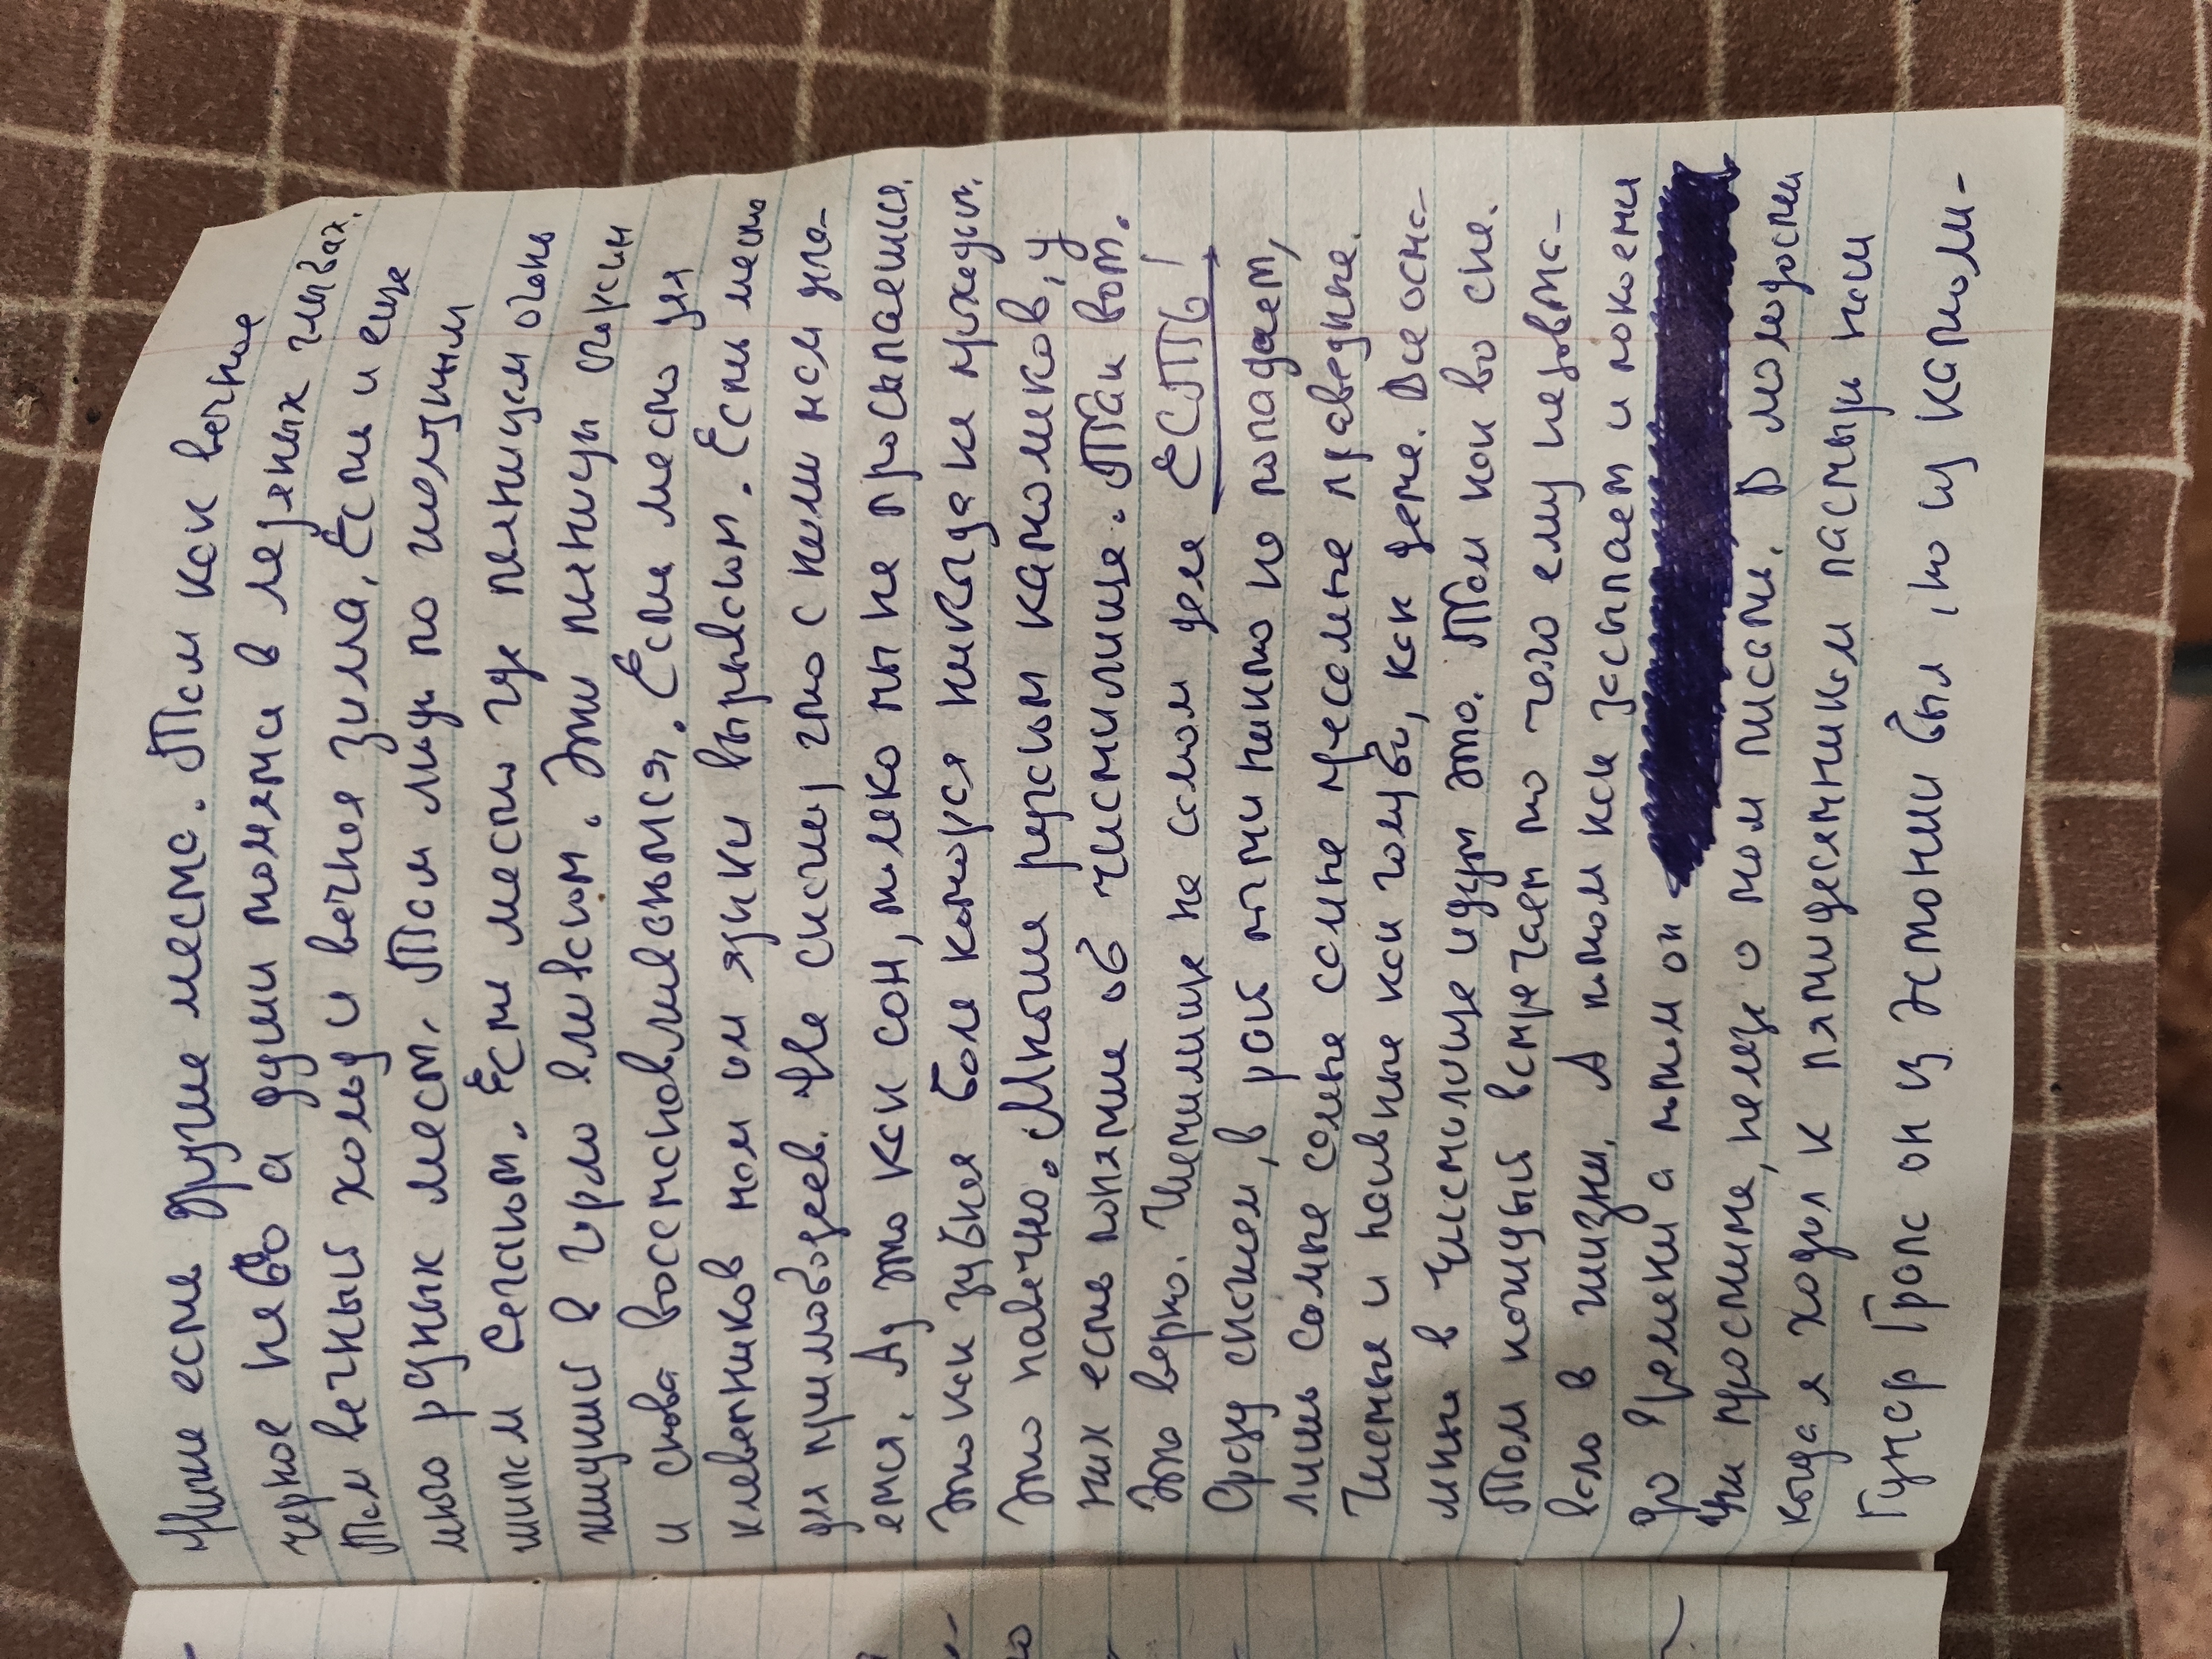 Ниже есть другие места. Там как вечное
черное небо а души томятся в ледяных глыбах.
Там вечный холод и вечная зима. Есть и еще
много разных мест. Там люди по
шипам скачком. Есть место где пьяницам огонь
жидкий в горло вливают. Эти пьяницы сгорают
и снова восстанавливаются. Есть место для
клеветников там им языки вырывают. Есть место
для прилюбодеев. Не счесть что с ними там дела-
ется. Ад это как сон, только ты не просыпаешься.
Это как зубная боль которая никогда не проходит.
Это навечно. Многие рерхи католиков, у
них есть понятие об чистилище. Так вот.
Это верно. Чистилище на самом деле ЕСТЬ!
Сразу скажем, в рай почти никто не попадает,
лишь самые самые самые пресамые праведные.
Чистые и наивные как голуби, как дети. Все оста-
льные в чистилище идут это. Там как во сне.
Там каждый встречает то чего ему недовта-
вало в жизни. А потом как засыпает и
до времени а потом он
Ты прости, немцы о том писали. В молодости
когда я ходил к пятидесятникам пастырь наш
Гунар Гропс он из Эстонии был, но из католи-